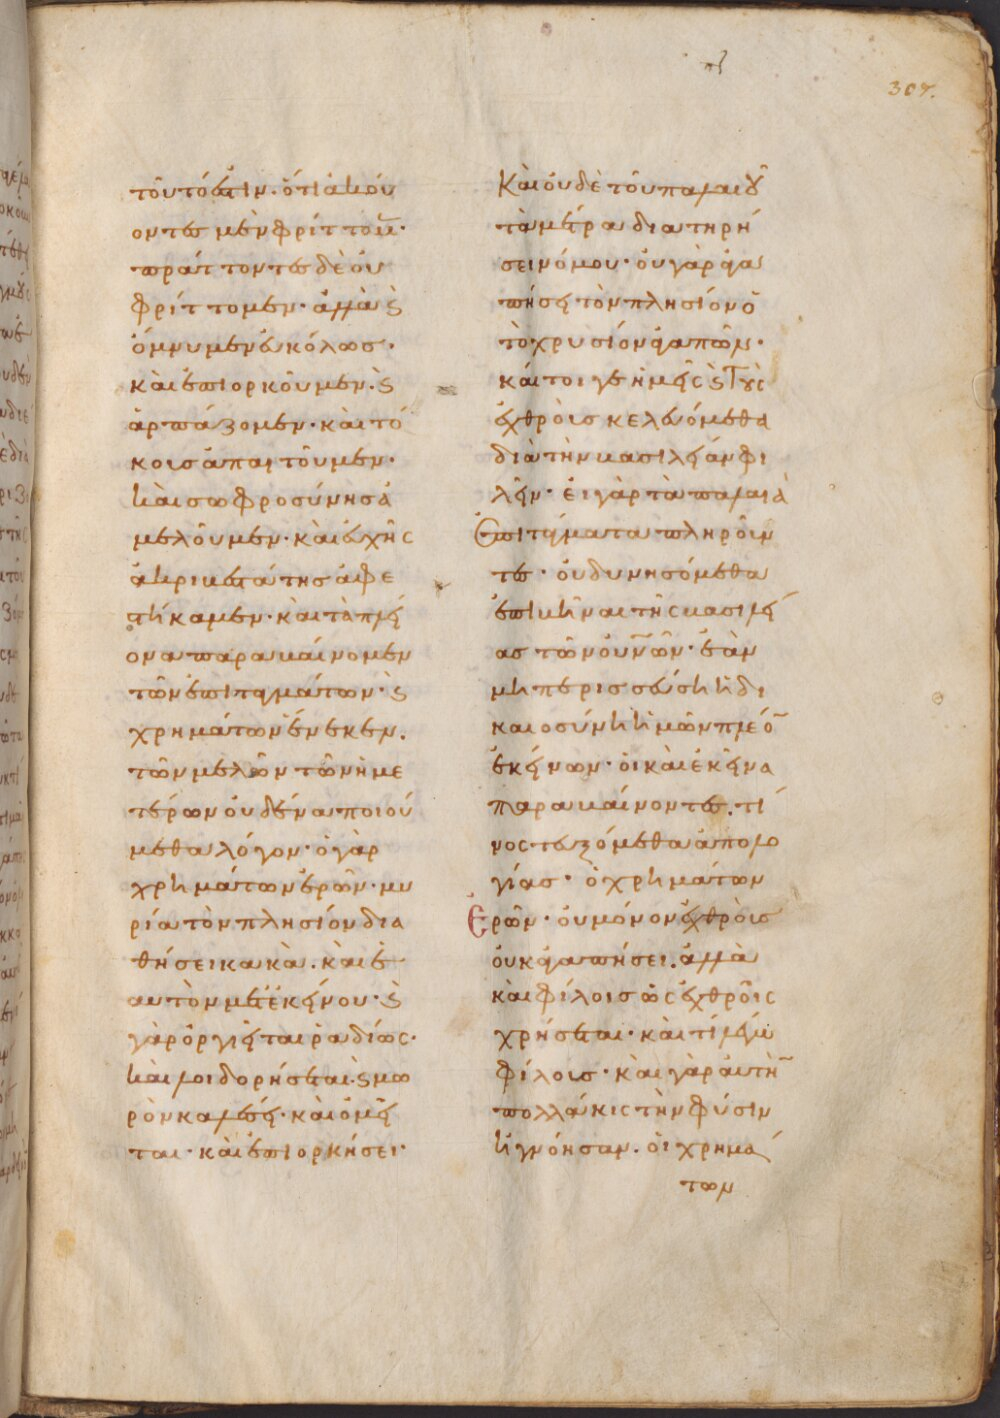 307.
τοῦτό ἐστιν. ὅτι ἀκού
οντες μὲν φρίττομ̅.
πράττοντες δὲ οὐ
φρίττομεν. ἀλλὰ ϛ
ὄμνυμεν εὐκόλως.
καὶ ἐπιορκοῦμεν. ϛ
ἁρπάζομεν. καὶ τό
κους ἀπαιτοῦμεν.
καὶ σωφροσύνης ἀ
μελοῦμεν. καὶ εὐχῆς
ἀκριβεστάτης ἀφε
στήκαμεν. καὶ τὰ πλεί
ονα παραβαίνομεν
τῶν ἐπιταγμάτων. ϛ
χρημάτων ἕνεκεν.
τῶν μελῶν τῶν ἡμε
τέρων οὐδένα ποιού
μεθα λόγον. ὁ γὰρ
χρημάτων ἐρῶν. μυ
ρία τὸν πλησίον δια
θήσει κακὰ. καὶ ἑ
αυτὸν μετ' ἐκείνου. ϛ
γὰρ ὀργιεῖται ῥαδίως.
καὶ λοιδορήσεται. ϛ μω
ρὸν καλέσει. καὶ ὀμεῖ
ται. καὶ ἐπιορκήσει.
Καὶ οὐδὲ τοῦ παλαιοῦ
τὰ μέτρα διατηρή
σει νόμου. οὐ γὰρ ἀγα
πήσει τὸν πλησίον ὁ
τὸ χρυσίον ἀγαπῶν.
καίτοι γε ἡμεῖς ϛ τοὺς
ἐχθροὺς κελευόμεθα
διὰ τὴν βασιλείαν φι
λεῖν. εἰ γὰρ τὰ παλαιὰ
ἐπιτάγματα πληροῦν
τες. οὐ δυνησόμεθα
ἐπιβῆναι τῆς βασιλεί
ας τῶν οὐν̅ῶν. ἐὰν
μὴ περισσεύσῃ ἡ δι
καιοσύνη ἡμῶν πλεῖο̅
ἐκείνων. οἱ καὶ ἐκεῖνα
παραβαίνοντες. τί
νος τευξόμεθα ἀπολο
γίας. ὁ χρημάτων
ἐρῶν. οὐ μόνον ἐχθροὺς
οὐκ ἀγαπήσει. ἀλλὰ
καὶ φίλοις ὡς ἐχθροῖς
χρήσεται. καὶ τί λέγω
φίλους. καὶ γὰρ αὐτὴ̅
πολλάκις τὴν φύσιν
ἠγνόησαν. οἱ χρημά
των